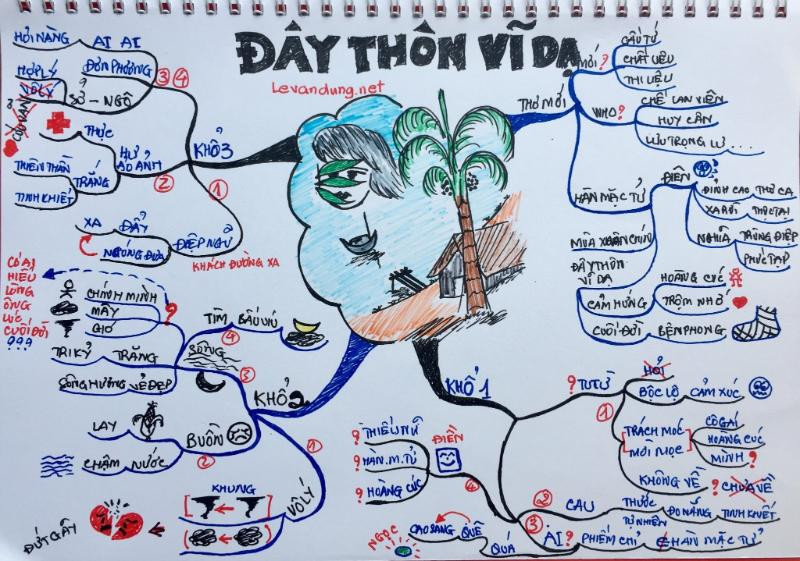 ĐÂY THÔN VĨ DẠ
Levandung.net
THƠ MỚI
MỚI ?
CẤU TỨ
CHẤT LIỆU
THI LIỆU
WHO ?
CHẾ LAN VIÊN
HUY CẬN
LƯU TRỌNG LƯ ...
HÀN MẶC TỬ
ĐIÊN
ĐỈNH CAO THƠ CA
XA RỜI THỰC TẠI
NGHĨA
TRÙNG ĐIỆP
PHỨC TẠP
MÙA XUÂN CHÍN
ĐÂY THÔN
VĨ DẠ
CẢM HỨNG
HOÀNG CÚC
TRỘM NHỚ
CUỐI ĐỜI
BỆNH PHONG
KHỔ 1
? TU TỪ
HỎI
BỘC LỘ CẢM XÚC
1
TRÁCH MÓC
MỜI MỌC
CÔ GÁI
HOÀNG CÚC
MÌNH ?
KHÔNG VỀ ? CHƯA VỀ
2
CAU
THƯỚC
TỰ NHIÊN
ĐO NẮNG
TINH KHIẾT
3
AI ?
PHIẾM CHỈ
HÀN MẶC TỬ
QUÁ
CAO SANG QUÊ
NGỌC
4
ĐIỀN
? THIẾU NỮ
? HÀN.M.TỬ
? HOÀNG CÚC
KHỔ 2
1
VÔ LÝ
KHUNG
ĐỨT GÃY
2
BUỒN
LAY
CHẬM NƯỚC
3
SÔNG
TRĂNG
TRI KỶ
SÔNG HƯƠNG VẺ ĐẸP
?
CHÍNH MÌNH
MÂY
GIÓ
4
TÌM BẤU VÍU
CÓ AI
HIỂU
LÒNG
ÔNG
LÚC
CUỐI ĐỜI
???
KHỔ 3
1
ĐIỆP NGỮ
KHÁCH ĐƯỜNG XA
XA ĐẨY
NGÓNG ĐỢI
2
HƯ
ẢO ẢNH
THỰC
TRẮNG
THIÊN THẦN
TINH KHIẾT
3
4
ĐƠN PHƯƠNG
AI AI
HỎI NÀNG
SỞ - NGỘ
HỢP LÝ
VÔ LÝ